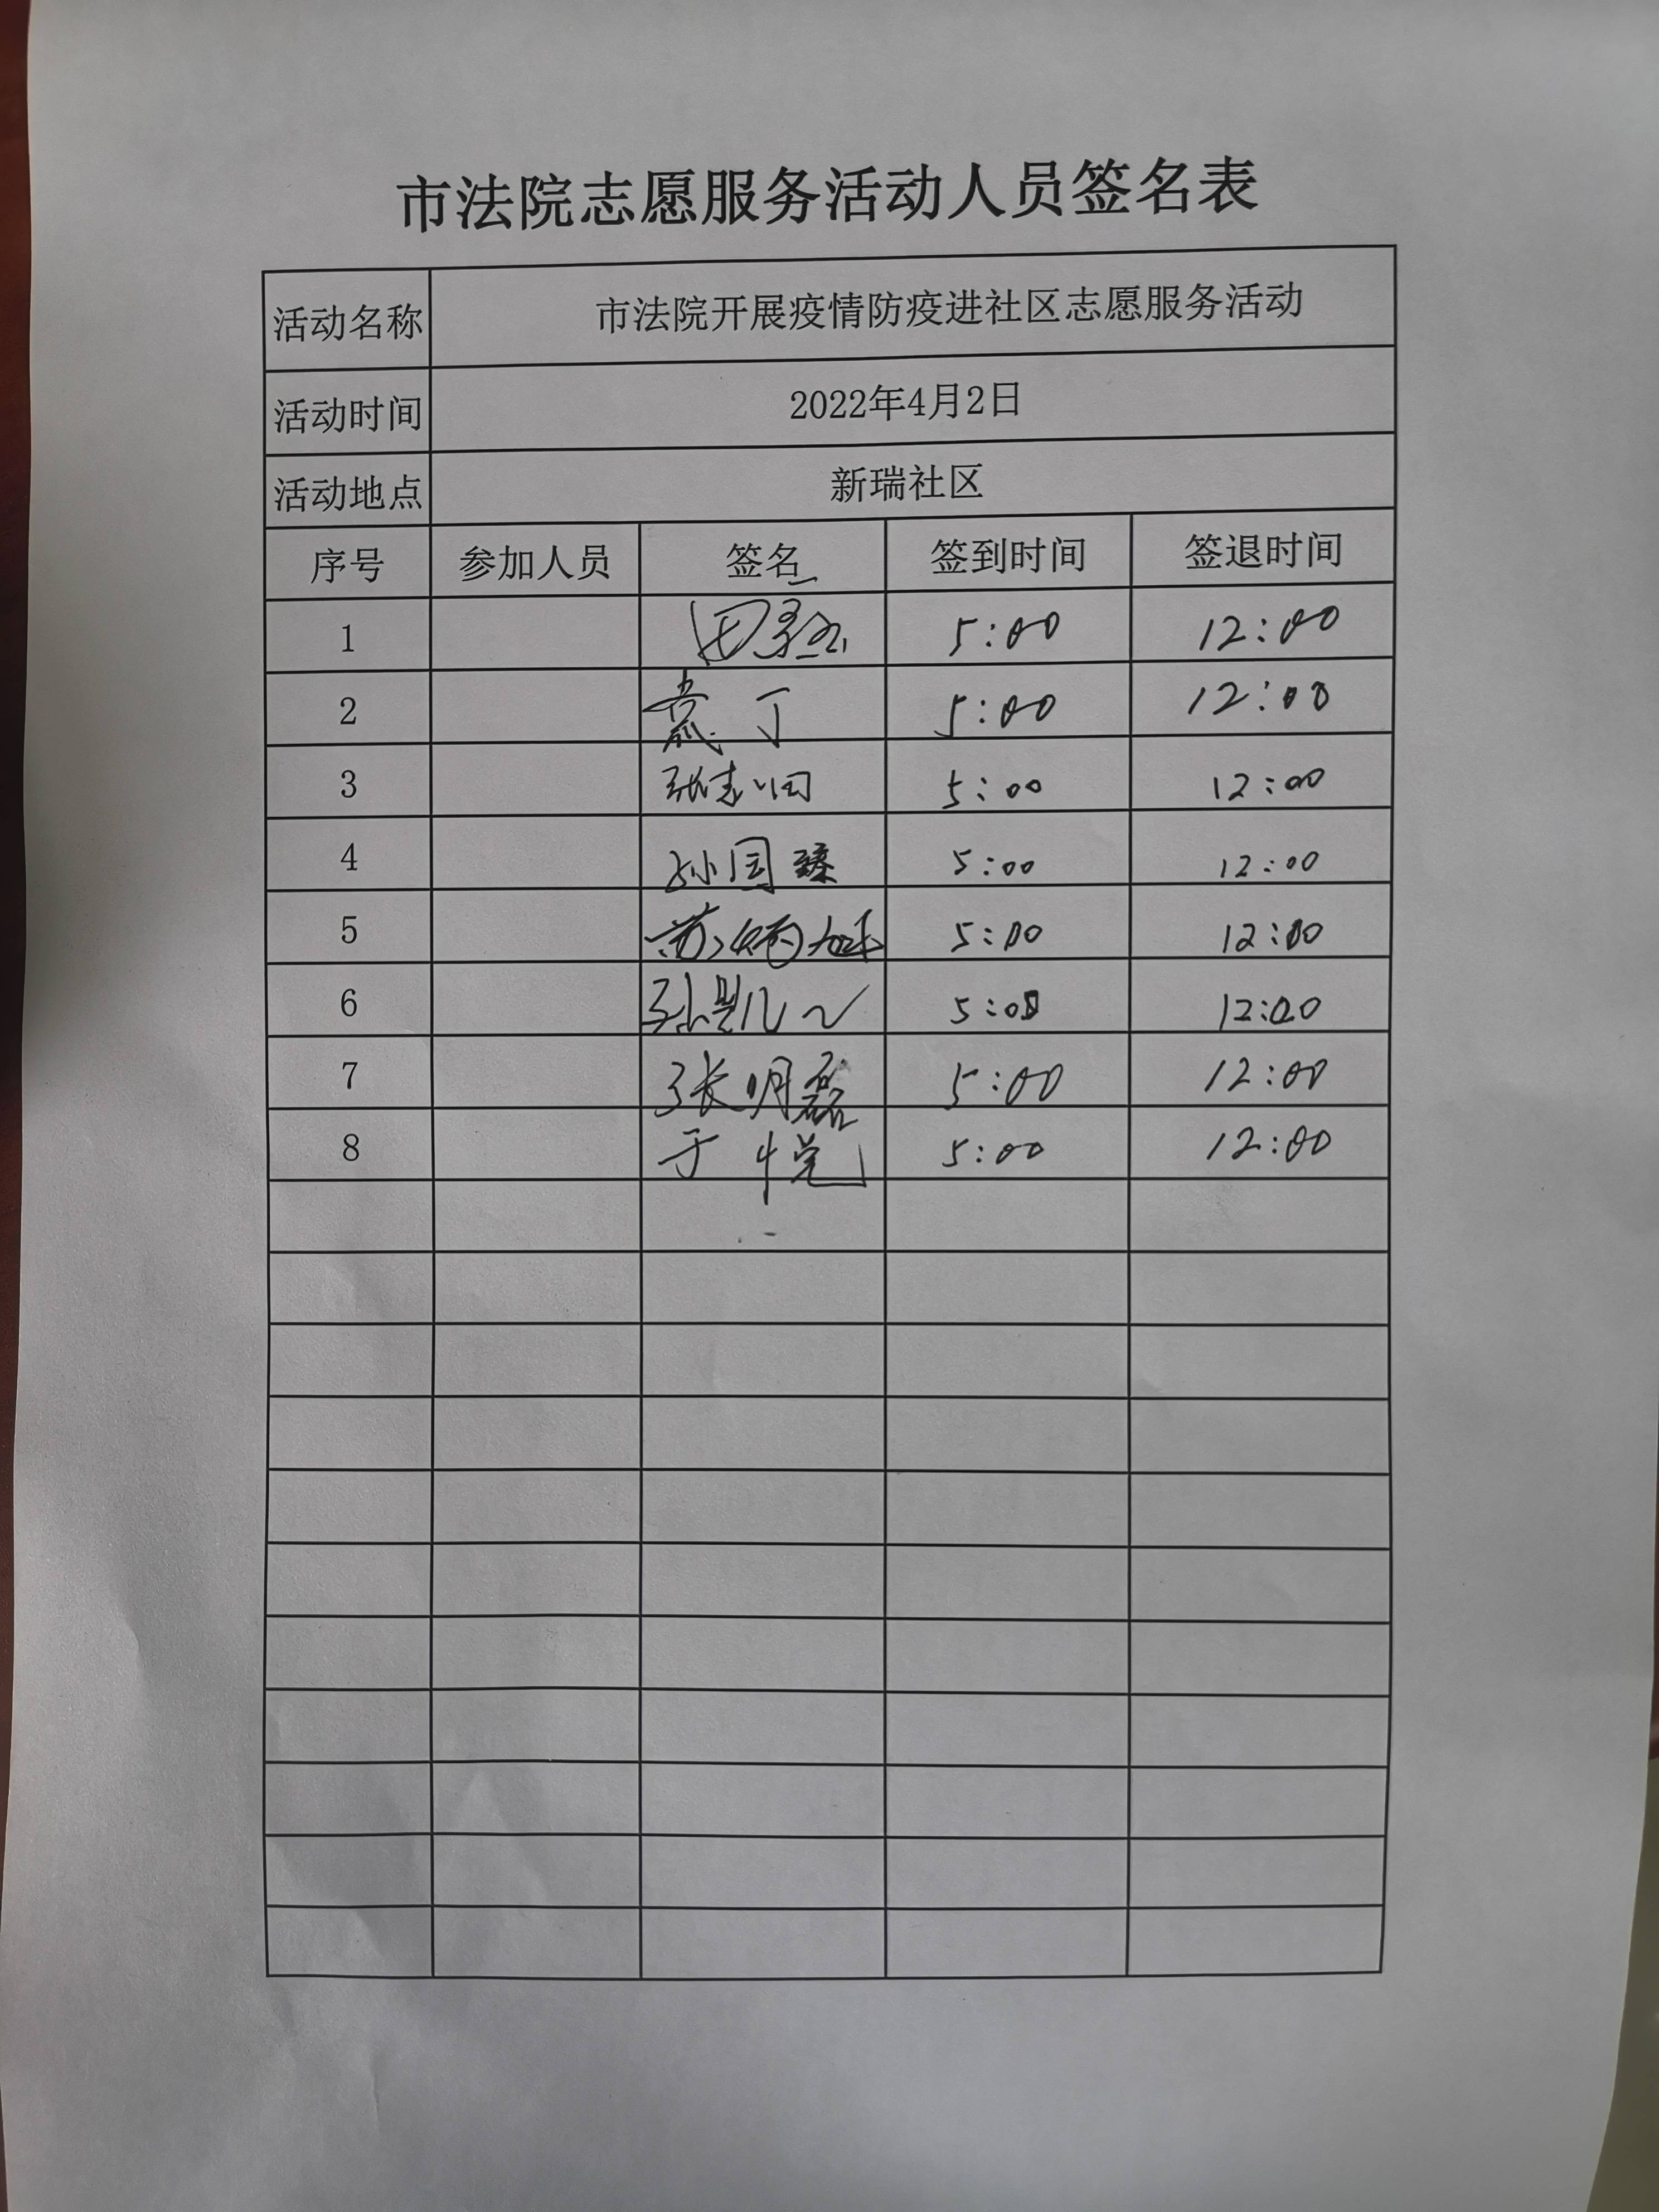 市法院志愿服务活动人员签名表
活动名称 市法院开展疫情防疫进社区志愿服务活动
活动时间 2022年4月2日
活动地点 新瑞社区
序号 参加人员 签名 签到时间 签退时间
1 5:00 12:00
2 袁丁 5:00 12:00
3 5:00 12:00
4 孙国臻 5:00 12:00
5 5:00 12:00
6 5:00 12:00
7 张明磊 5:00 12:00
8 于悦 5:00 12:00